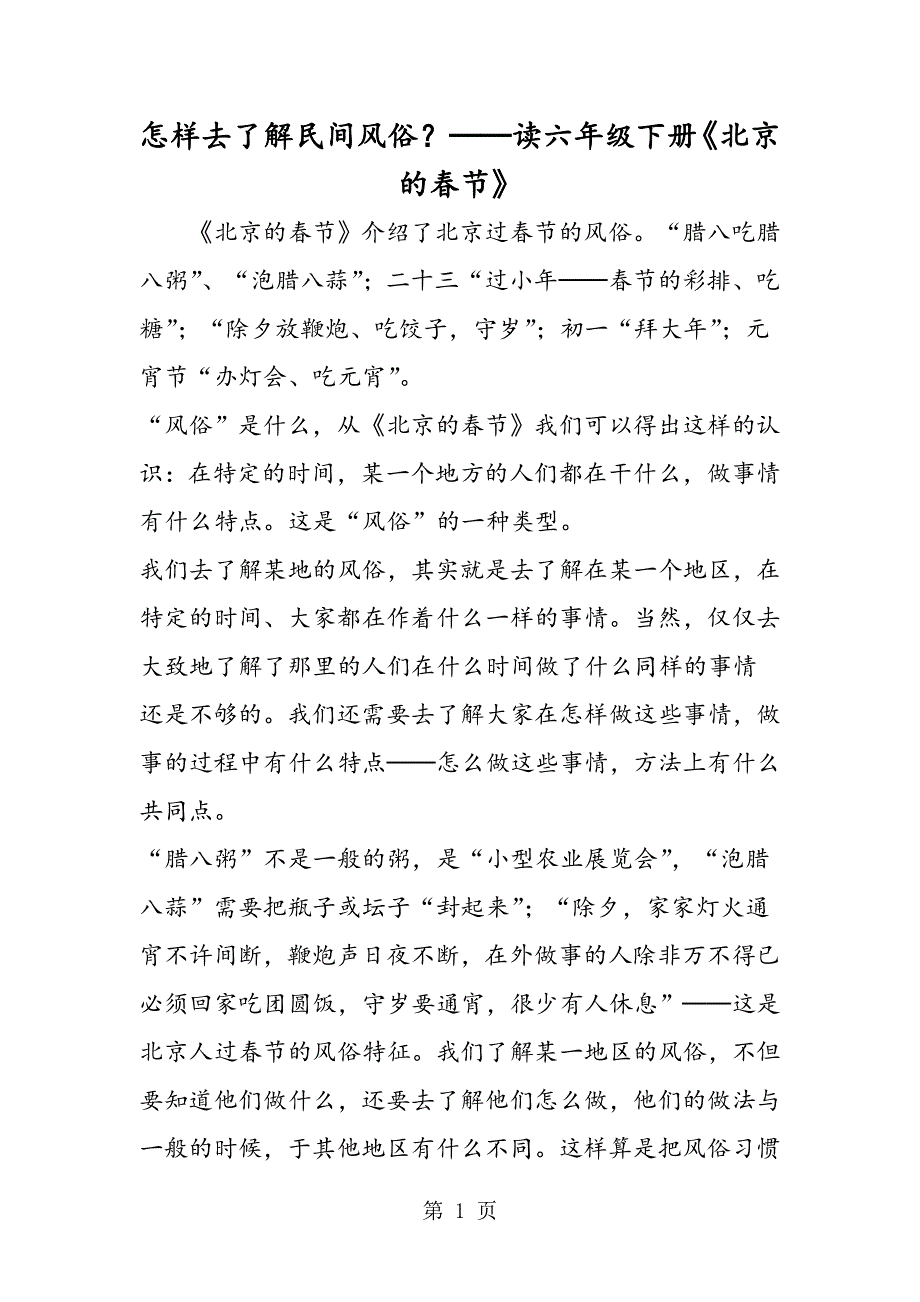 怎样去了解民间风俗？——读六年级下册《北京
的春节》
《北京的春节》介绍了北京过春节的风俗。“腊八吃腊
八粥”、“泡腊八蒜”；二十三“过小年——春节的彩排、吃
糖”；“除夕放鞭炮、吃饺子，守岁”；初一“拜大年”；元
宵节“办灯会、吃元宵”。
“风俗”是什么，从《北京的春节》我们可以得出这样的认
识：在特定的时间，某一个地方的人们都在干什么，做事情
有什么特点。这是“风俗”的一种类型。
我们去了解某地的风俗，其实就是去了解在某一个地区，在
特定的时间、大家都在作着什么一样的事情。当然，仅仅去
大致地了解了那里的人们在什么时间做了什么同样的事情
还是不够的。我们还需要去了解大家在怎样做这些事情，做
事的过程中有什么特点——怎么做这些事情，方法上有什么
共同点。
“腊八粥”不是一般的粥，是“小型农业展览会”，“泡腊
八蒜”需要把瓶子或坛子“封起来”；“除夕，家家灯火通
宵不许间断，鞭炮声日夜不断，在外做事的人除非万不得已
必须回家吃团圆饭，守岁要通宵，很少有人休息”——这是
北京人过春节的风俗特征。我们了解某一地区的风俗，不但
要知道他们做什么，还要去了解他们怎么做，他们的做法与
一般的时候，于其他地区有什么不同。这样算是把风俗习惯
第 1 页